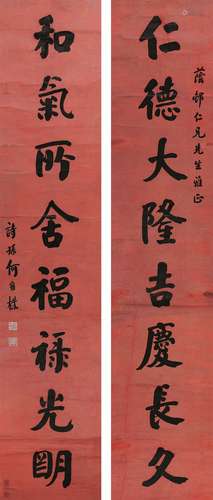 仁德大隆吉慶長久
蔭邨仁兄先生雅正
和氣所舍福祿光明
詩孫何維樸